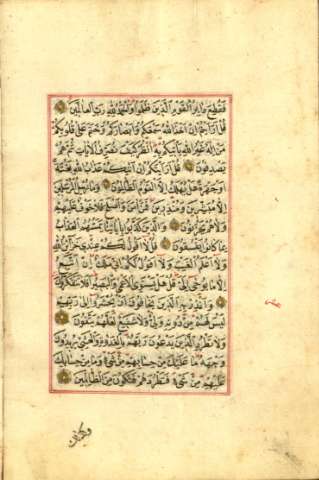 فقطع دابر القوم الذين ظلموا والحمد لله رب العالمين
قل ارايتم ان اخذ الله سمعكم وابصاركم وختم على قلوبكم
من اله غير الله ياتيكم به انظر كيف نصرف الايات ثم هم
يصدفون قل ارايتكم ان اتيكم عذاب الله بغتة
او جهرة هل يهلك الا القوم الظالمون وما نرسل المرسلين
الا مبشرين ومنذرين فمن امن واصلح فلا خوف عليهم
ولا هم يحزنون والذين كذبوا باياتنا يمسهم العذاب
بما كانوا يفسقون قل لا اقول لكم عندي خزائن الله
ولا اعلم الغيب ولا اقول لكم اني ملك ان اتبع
الا ما يوحى الي قل هل يستوي الاعمى والبصير افلا تتفكرون
وانذر به الذين يخافون ان يحشروا الى ربهم
ليس لهم من دونه ولي ولا شفيع لعلهم يتقون
ولا تطرد الذين يدعون ربهم بالغدوة والعشي يريدون
وجهه ما عليك من حسابهم من شيء وما من حسابك
عليهم من شيء فتطردهم فتكون من الظالمين
وكذلك